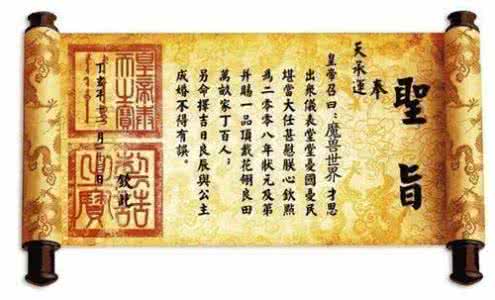 聖旨
奉
天承運
皇帝召曰:魔兽世界 才思
出衆儀表堂堂憂國憂民
堪當大任甚慰朕心欽點
為二〇〇八年狀元及第
并賜一品頂戴花翎良田
萬畝家丁百人;
另命擇吉日良辰與公主
成婚不得有誤。
欽此
皇帝奉
天之寶
制誥
之寶
丁亥年 月 日